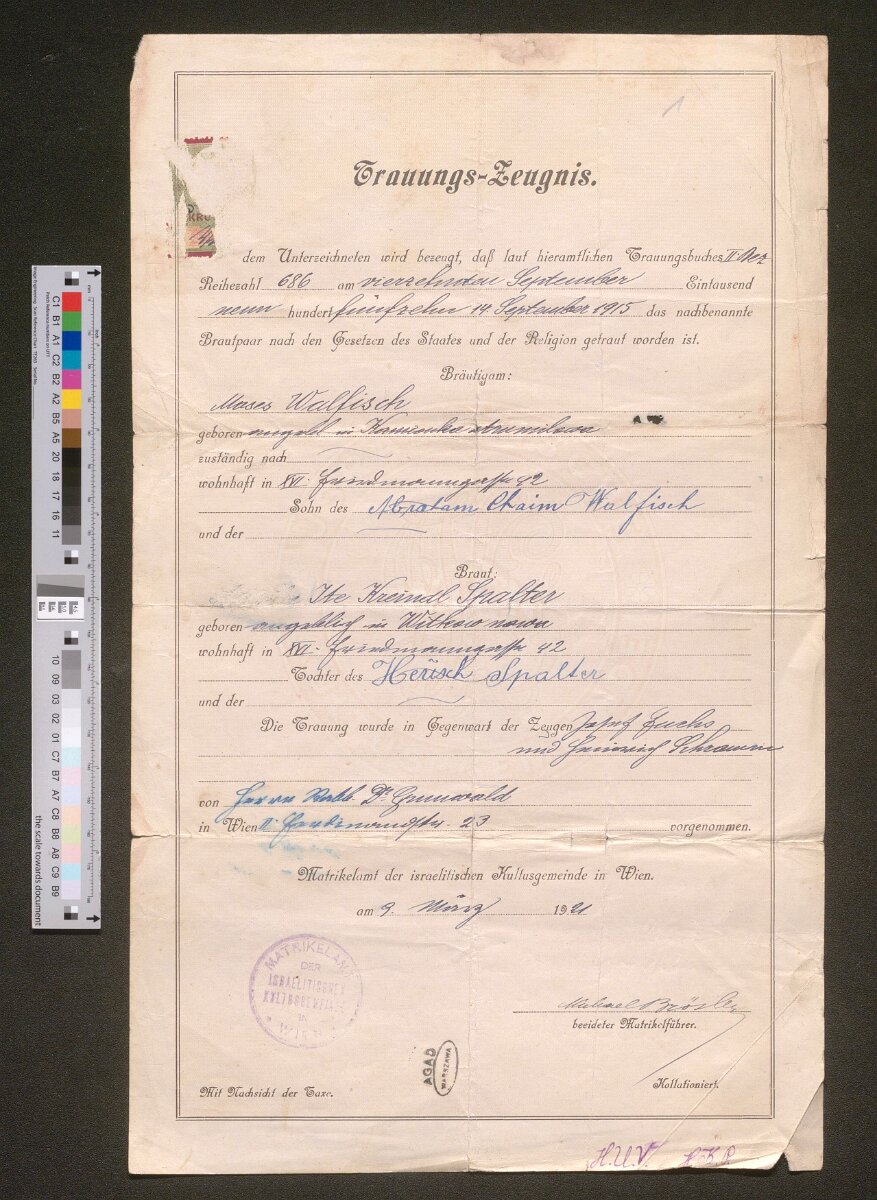 1
Trauungs-Zeugnis.
KRO
dem Unterzeichneten wird bezeugt, daß laut hieramtlichen Trauungsbuches II. Bez
Reihezahl 686 am vierzehnten September Eintausend
neun hundert fünfzehn 14. September 1915 das nachbenannte
Brautpaar nach den Gesetzen des Staates und der Religion getraut worden ist.
Bräutigam:
Moses Walfisch
geboren angebl in Kamionka strumilowa
zuständig nach
wohnhaft in XVI. Friedmanngasse 42
Sohn des Abraham Chaim Walfisch
und der
Braut:
Ite Kreindl Spalter
geboren angeblich in Witkow nowy
wohnhaft in XVI. Friedmanngasse 42
Tochter des Hersch Spalter
und der
Die Trauung wurde in Gegenwart der Zeugen Josef Fuchs
und Heinrich
von Herrn Rabb. Dr Grunwald
in Wien II. Ferdinandstr. 23 vorgenommen.
Matrikelamt der israelitischen Kultusgemeinde in Wien.
am 9. März 1921
MATRIKELAMT
DER
ISRAELITISCHEN
KULTUSGEMEINDE
IN
WIEN
beeideter Matrikelführer.
AGAD
WARSZAWA
Mit Nachsicht der Taxe.
Kollationiert.
H.U.V. H.K.P.
the scale towards document
C1 B1 A1 C2 B2 A2 B5 A5 20 18 17 16 11
10 09 03 02 01 C7 B7 A7 C8 B8 A8 C9 B9